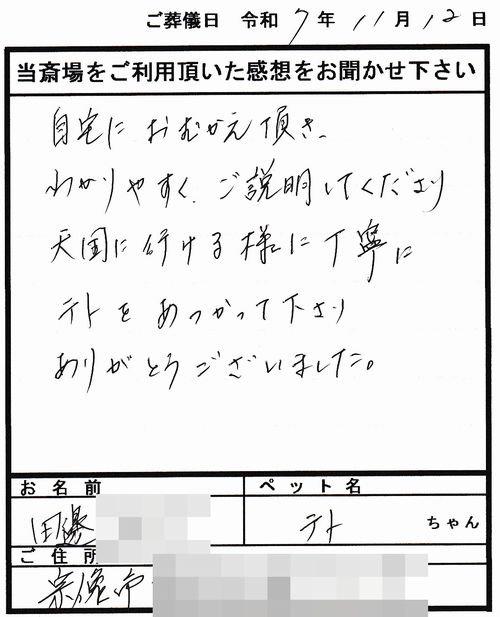 ご葬儀日 令和 7 年 11 月 12 日
当斎場をご利用頂いた感想をお聞かせ下さい
自宅におむかえ頂き、
わかりやすく、ご説明してくださり
天国に行ける様に丁寧に
テトをあつかって下さり
ありがとうございました。
お名前
ペット名
田邊
テト ちゃん
ご住所
宗像市